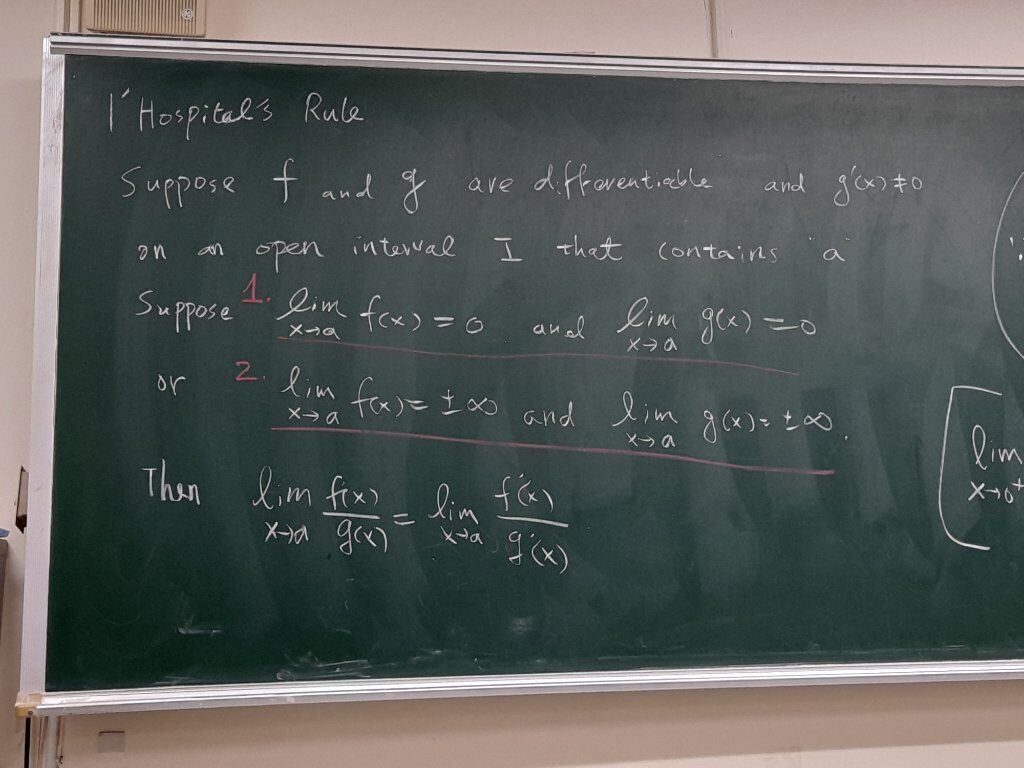 l'Hospital's Rule
Suppose f and g are differentiable and g'(x) ≠ 0
on an open interval I that contains "a"
Suppose 1. lim x→a f(x) = 0 and lim x→a g(x) = 0
or 2. lim x→a f(x) = ±∞ and lim x→a g(x) = ±∞.
Then lim x→a f(x)/g(x) = lim x→a f'(x)/g'(x)
lim x→0⁺